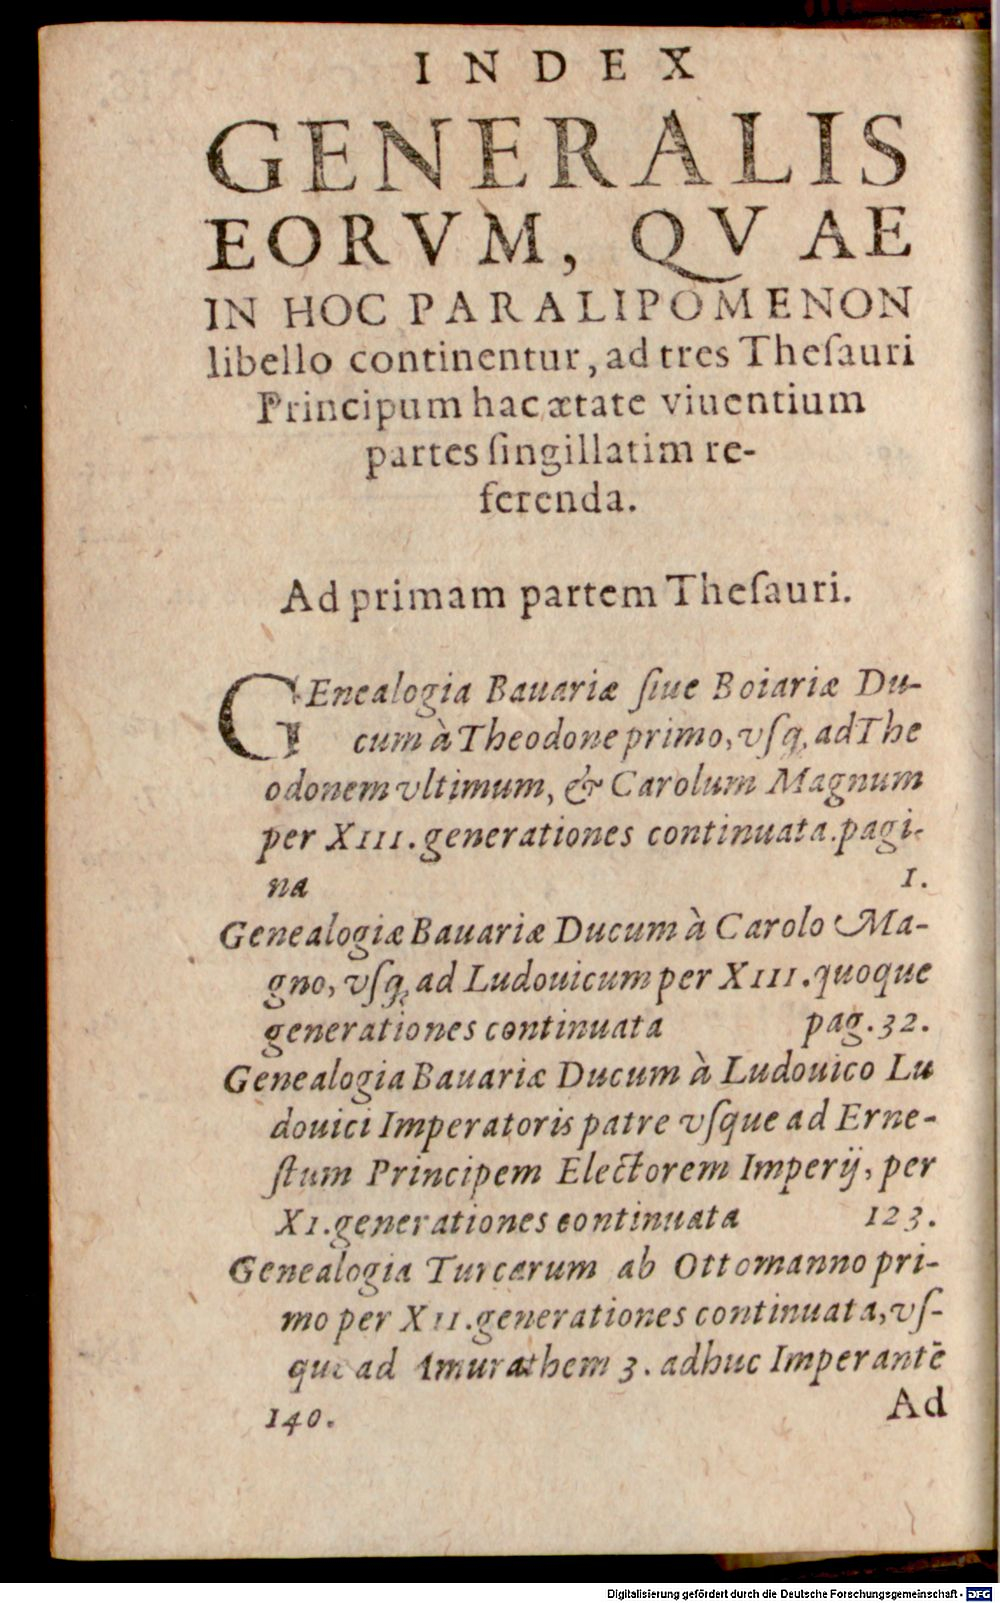 INDEX
GENERALIS
EORVM, QVAE
IN HOC PARALIPOMENON
libello continentur, ad tres Theſauri
Principum hac ætate viuentium
partes ſingillatim re-
ferenda.
Ad primam partem Theſauri.
GEnealogia Bauariæ ſiue Boiariæ Du-
cum à Theodone primo, vſq; ad The
odonem vltimum, & Carolum Magnum
per XIII. generationes continuata. pagi-
na 1.
Genealogiæ Bauariæ Ducum à Carolo Ma-
gno, vſq; ad Ludouicum per XIII. quoque
generationes continuata pag. 32.
Genealogia Bauariæ Ducum à Ludouico Lu
douici Imperatoris patre vſque ad Erne-
ſtum Principem Electorem Imperij, per
XI. generationes continuata 123.
Genealogia Turcarum ab Ottomanno pri-
mo per XII. generationes continuata, vſ-
que ad Amurathem 3. adhuc Imperantē
140. Ad
Digitalisierung gefördert durch die Deutsche Forschungsgemeinschaft - DFG